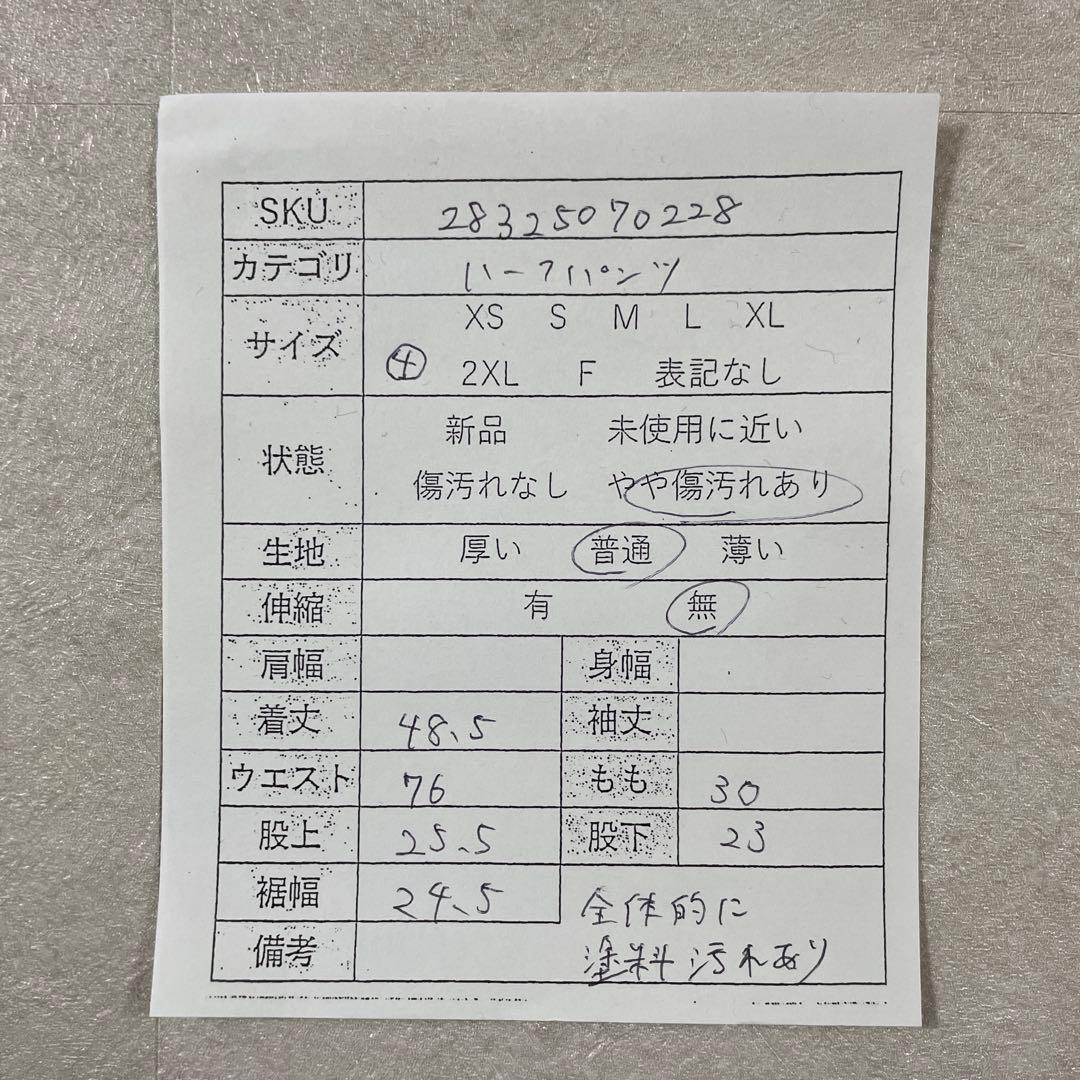 SKU 28325070228
カテゴリ ハーフパンツ
サイズ XS S M L XL
4 2XL F 表記なし
状態 新品 未使用に近い
傷汚れなし やや傷汚れあり
生地 厚い 普通 薄い
伸縮 有 無
肩幅 身幅
着丈 48.5 袖丈
ウエスト 76 もも 30
股上 25.5 股下 23
裾幅 24.5 全体的に
備考 塗料汚れあり